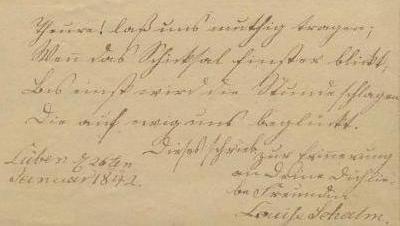 Theure! laß uns muthig tragen;
Wen̄ das Schicksal finster blickt,
Bis einst wird die Stunde schlagen
Die auf ewig uns beglückt.
Dieses schrieb zur Erinerung
an Deine Dich lie-
be Freundin
Louise Schalm.
Lüben d 26ten
Januar 1842.